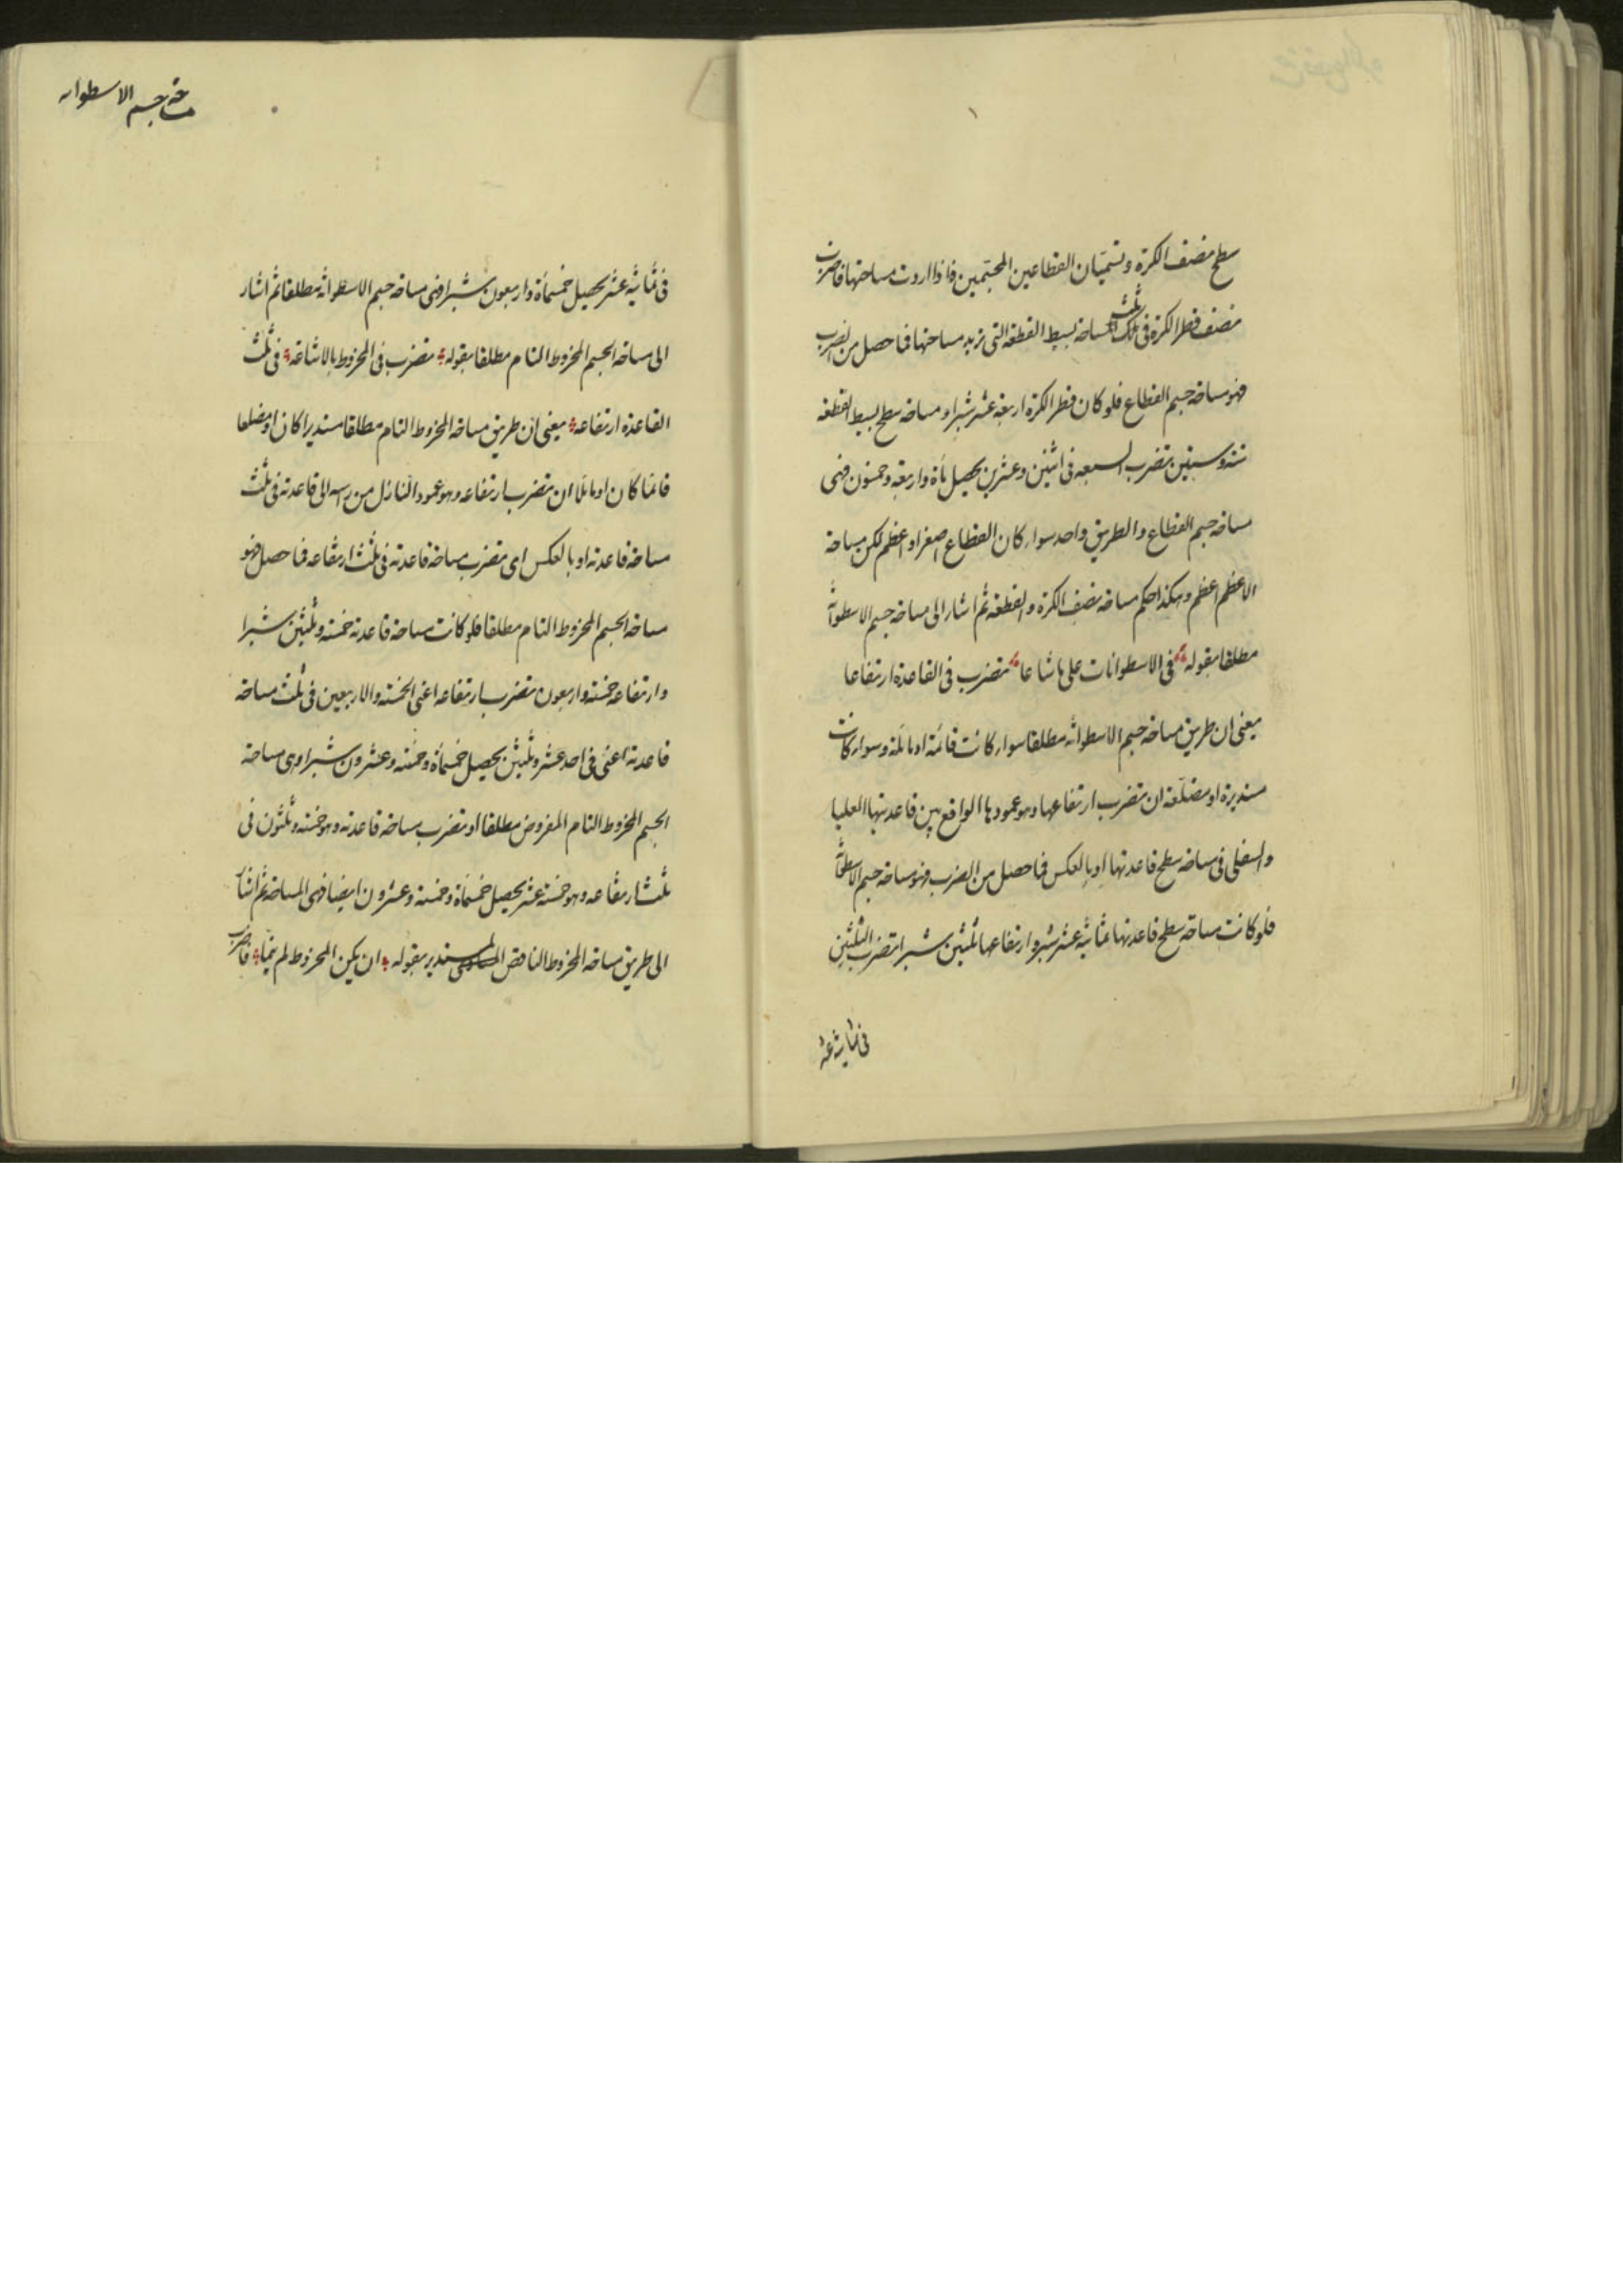 سطح نصف الكرة وتسميان القطاعين المجسمين فاذا اردت مساحتها فاضرب
نصف قطر الكرة فى ثلث مساحة بسيط القطعة التى تريد مساحتها فما حصل من الضرب
فهو مساحة جسم القطاع فلو كان قطر الكرة اربعة عشر شبرا و مساحة سطح بسيط القطعة
ستة وستين تضرب السبعة فى اثنين وعشرين يحصل مأة واربعة وخمسون فهى
مساحة جسم القطاع والطريق واحد سواء كان القطاع اصغر او اعظم لكن مساحة
الاعظم اعظم وهكذا حكم مساحة نصف الكرة والقطعة ثم اشار الى مساحة جسم الاسطوانة
مطلقا بقوله فى الاسطوانات على ما شاعا تضرب فى القاعدة ارتفاعا
يعنى ان طريق مساحة جسم الاسطوانة مطلقا سواء كانت قائمة او مائلة وسواء كانت
مستديرة او مضلعة ان تضرب ارتفاعها وهو عمودها الواقع بين قاعدتيها العليا
والسفلى فى مساحة سطح قاعدتها او بالعكس فما حصل من الضرب فهو مساحة جسم الاسطوانة
فلو كانت مساحة سطح قاعدتها ثمانية عشر شبرا وارتفاعها ثلثين شبرا تضرب الثلثين
فى ثمانية عشر
مساحة جسم الاسطوانه
فى ثمانية عشر يحصل خمسمأة واربعون شبرا فهى مساحة جسم الاسطوانة مطلقا ثم اشار
الى مساحة الجسم المخروط التام مطلقا بقوله تضرب فى المخروط بالاشاعة فى ثلث
القاعدة ارتفاعه يعنى ان طريق مساحة المخروط التام مطلقا مستديرا كان او مضلعا
قائما كان او مائلا ان تضرب ارتفاعه وهو عمود النازل من رأسه الى قاعدته فى ثلث
مساحة قاعدته او بالعكس اى تضرب مساحة قاعدته فى ثلث ارتفاعه فما حصل فهو
مساحة الجسم المخروط التام مطلقا فلو كانت مساحة قاعدته خمسة وثلثين شبرا
وارتفاعه خمسة واربعون تضرب ارتفاعه اعنى الخمسة والاربعين فى ثلث مساحة
قاعدته اعنى فى احد عشر وثلثين يحصل خمسمأة وخمسة وعشرون شبرا وهى مساحة
الجسم المخروط التام المفروض مطلقا او تضرب مساحة قاعدته وهو خمسة وثلثون فى
ثلث ارتفاعه وهو خمسة عشر يحصل خمسمأة وخمسة وعشرون ايضا فهى المساحة ثم اشار
الى طريق مساحة المخروط الناقص المستدير بقوله ان يكن المخروط لم يتما فاضرب